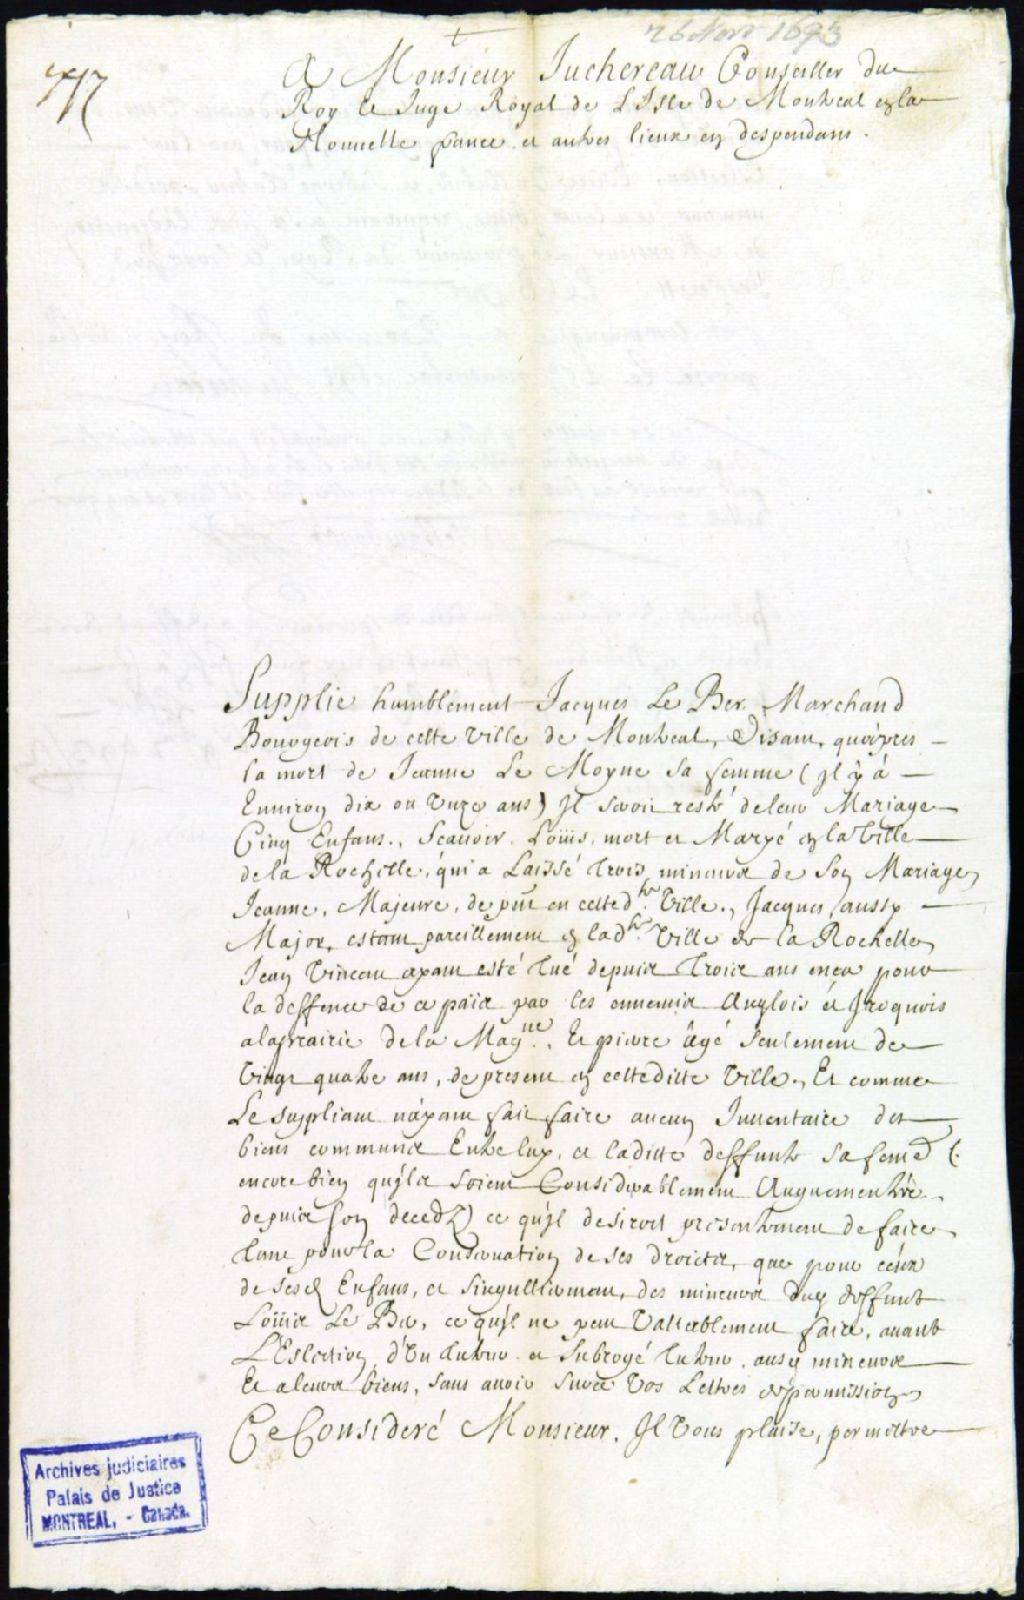 26 Nov 1693
A Monsieur Juchereau Conseiller du
Roy Le Juge Royal de L'Isle de Montreal en la
Nouuelle france et autres lieux en despendans.
Supplie humblement Jacques Le Ber Marchand
Bourgeois de cette Ville de Montreal, Disant, qu'apres
la mort de Jeanne Le Moyne sa femme (Il y à
Enuiron dix ou Unze ans) Il seroit resté de leur Mariage
Cinq Enfans, Scauoir Loüis, mort et Maryé en la Ville
de la Rochelle, qui a Laissé trois mineurs de Son Mariage,
Jeanne, Majeure, de pnt en cette dte Ville, Jacques aussy
Major, estant pareillement en lad.te Ville de la Rochelle,
Jean Vincent ayant esté tué depuis trois ans ença pour
la deffence de ce païs par les ennemis Anglois et Iroquois
a la prairie de la Mag.ne, Et pierre âgé seulement de
Vingt quatre ans, de present en cette ditte Ville, Et comme
Le suppliant n'ayant fait faire aucun Inuentaire des
biens communs Entre luy, et la ditte deffunte sa feme (
encore bien qu'jls soient Considerablement Augmentés
depuis son decedz) ce qu'jl desiroit presentement de faire
tant pour la Conseruation de ses droicts, que pour ceux
de sesd Enfans, et singullierement, des mineurs dud deffunt
Loüis Le Ber, ce qu'jl ne peut Vallablement faire, auant
L'Eslection d'Un tuteur et Subrogé tuteur, ausd mineurs
Et a leurs biens, sans auoir sur ce Vos Lettres de permission,
Ce Consideré Monsieur, Il Vous plaise, permettre
Archives judiciaires
Palais de Justice
MONTREAL, - Canada.